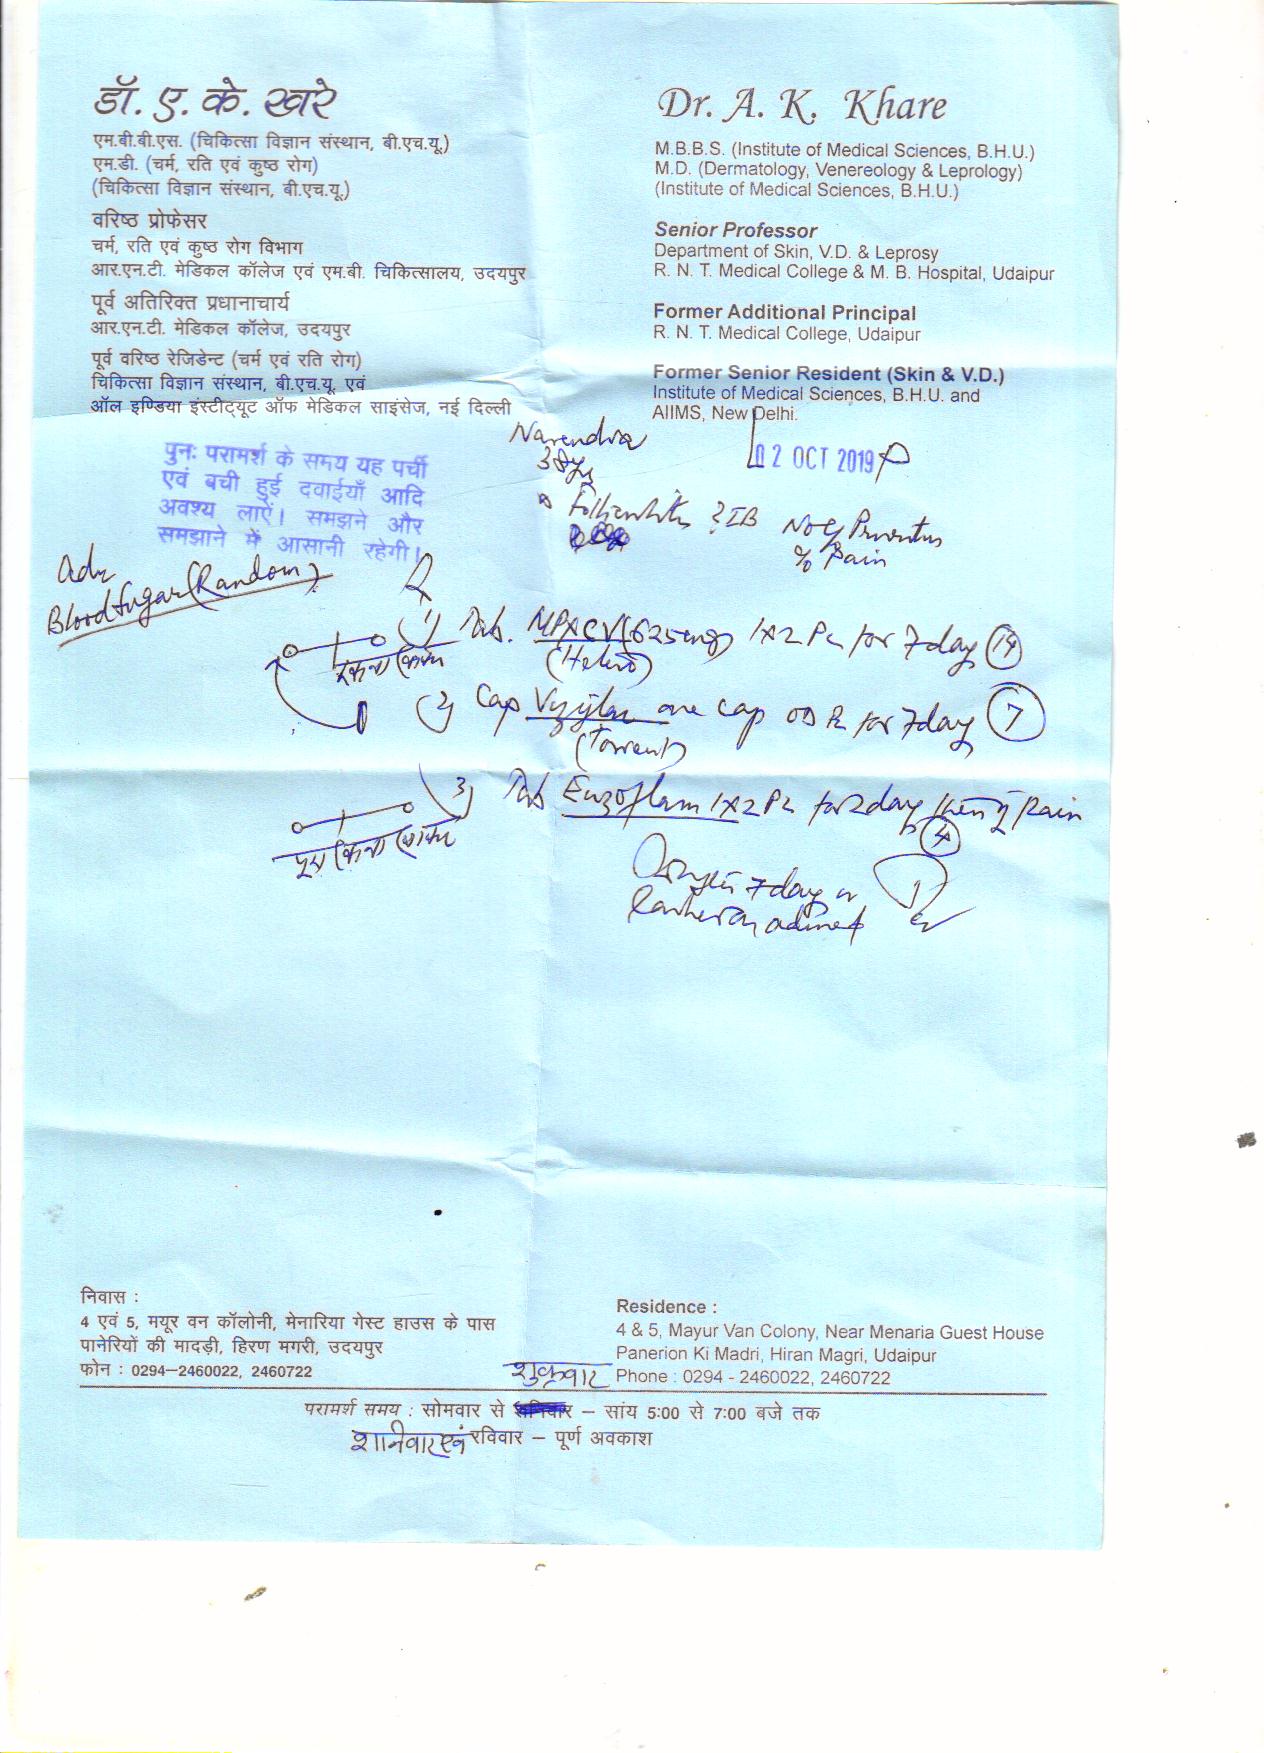 डॉ. ए. के. खरे
एम.बी.बी.एस. (चिकित्सा विज्ञान संस्थान, बी.एच.यू.)
एम.डी. (चर्म, रति एवं कुष्ठ रोग)
(चिकित्सा विज्ञान संस्थान, बी.एच.यू.)
वरिष्ठ प्रोफेसर
चर्म, रति एवं कुष्ठ रोग विभाग
आर.एन.टी. मेडिकल कॉलेज एवं एम.बी. चिकित्सालय, उदयपुर
पूर्व अतिरिक्त प्रधानाचार्य
आर.एन.टी. मेडिकल कॉलेज, उदयपुर
पूर्व वरिष्ठ रेजिडेन्ट (चर्म एवं रति रोग)
चिकित्सा विज्ञान संस्थान, बी.एच.यू. एवं
ऑल इण्डिया इंस्टीट्यूट ऑफ मेडिकल साइंसेज, नई दिल्ली
Dr. A. K. Khare
M.B.B.S. (Institute of Medical Sciences, B.H.U.)
M.D. (Dermatology, Venereology & Leprology)
(Institute of Medical Sciences, B.H.U.)
Senior Professor
Department of Skin, V.D. & Leprosy
R. N. T. Medical College & M. B. Hospital, Udaipur
Former Additional Principal
R. N. T. Medical College, Udaipur
Former Senior Resident (Skin & V.D.)
Institute of Medical Sciences, B.H.U. and
AIIMS, New Delhi.
पुनः परामर्श के समय यह पर्ची
एवं बची हुई दवाईयाँ आदि
अवश्य लाऐं। समझने और
समझाने में आसानी रहेगी।
Narendra
02 OCT 2019
Folliculitis
Pain
Adv
Blood Sugar (Random)
1) Tab. MPXCV (625mg) 1x2 Pc for 7day 14
(Hetero)
2) Cap one cap OD for 7day 7
(Torrent)
3) Tab Enzoflam 1x2 Pc for 2day then Pain
4
7day
निवास :
4 एवं 5, मयूर वन कॉलोनी, मेनारिया गेस्ट हाउस के पास
पानेरियों की मादड़ी, हिरण मगरी, उदयपुर
फोन : 0294–2460022, 2460722
Residence :
4 & 5, Mayur Van Colony, Near Menaria Guest House
Panerion Ki Madri, Hiran Magri, Udaipur
Phone : 0294 - 2460022, 2460722
शुक्रवार
परामर्श समय : सोमवार से – सांय 5:00 से 7:00 बजे तक
शनिवार एवं रविवार – पूर्ण अवकाश